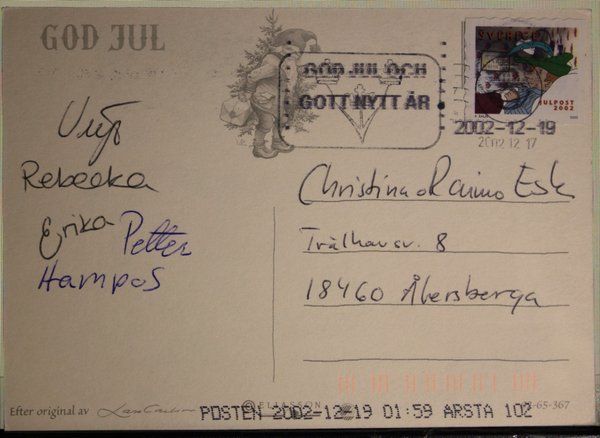 GOD JUL
SVERIGE
JULPOST
2002
GOD JUL OCH
GOTT NYTT ÅR
2002-12-19
2002 12 17
Rebecka
Erika Petter
Hampus
Christina o Raimo Esk
Trålhavsv. 8
18460 Åkersberga
© ELIASSON
65-367
Efter original av
POSTEN 2002-12-19 01:59 ARSTA 102